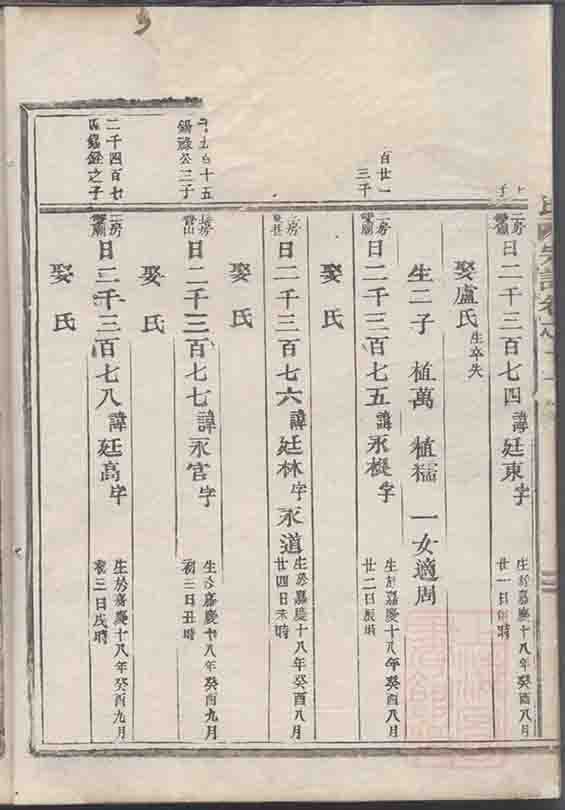 二房
日二千三百七四諱廷東字
生於嘉慶十八年癸酉八月
廿一日 時
娶盧氏生卒失
生二子 植萬 植 一女適周
百廿一
三子
二房
日二千三百七五諱永 字
生於嘉慶十八年癸酉八月
廿二日辰時
娶氏
二房
日二千三百七六諱廷林字永道
生於嘉慶十八年癸酉八月
廿四日未時
娶氏
百十五
錫祿公二子
房
日二千三百七七諱永官字
生於嘉慶十八年癸酉九月
初三日丑時
娶氏
二千四百七
之子
二房
日二千三百七八諱廷高字
生於嘉慶十八年癸酉九月
初三日戌時
娶氏